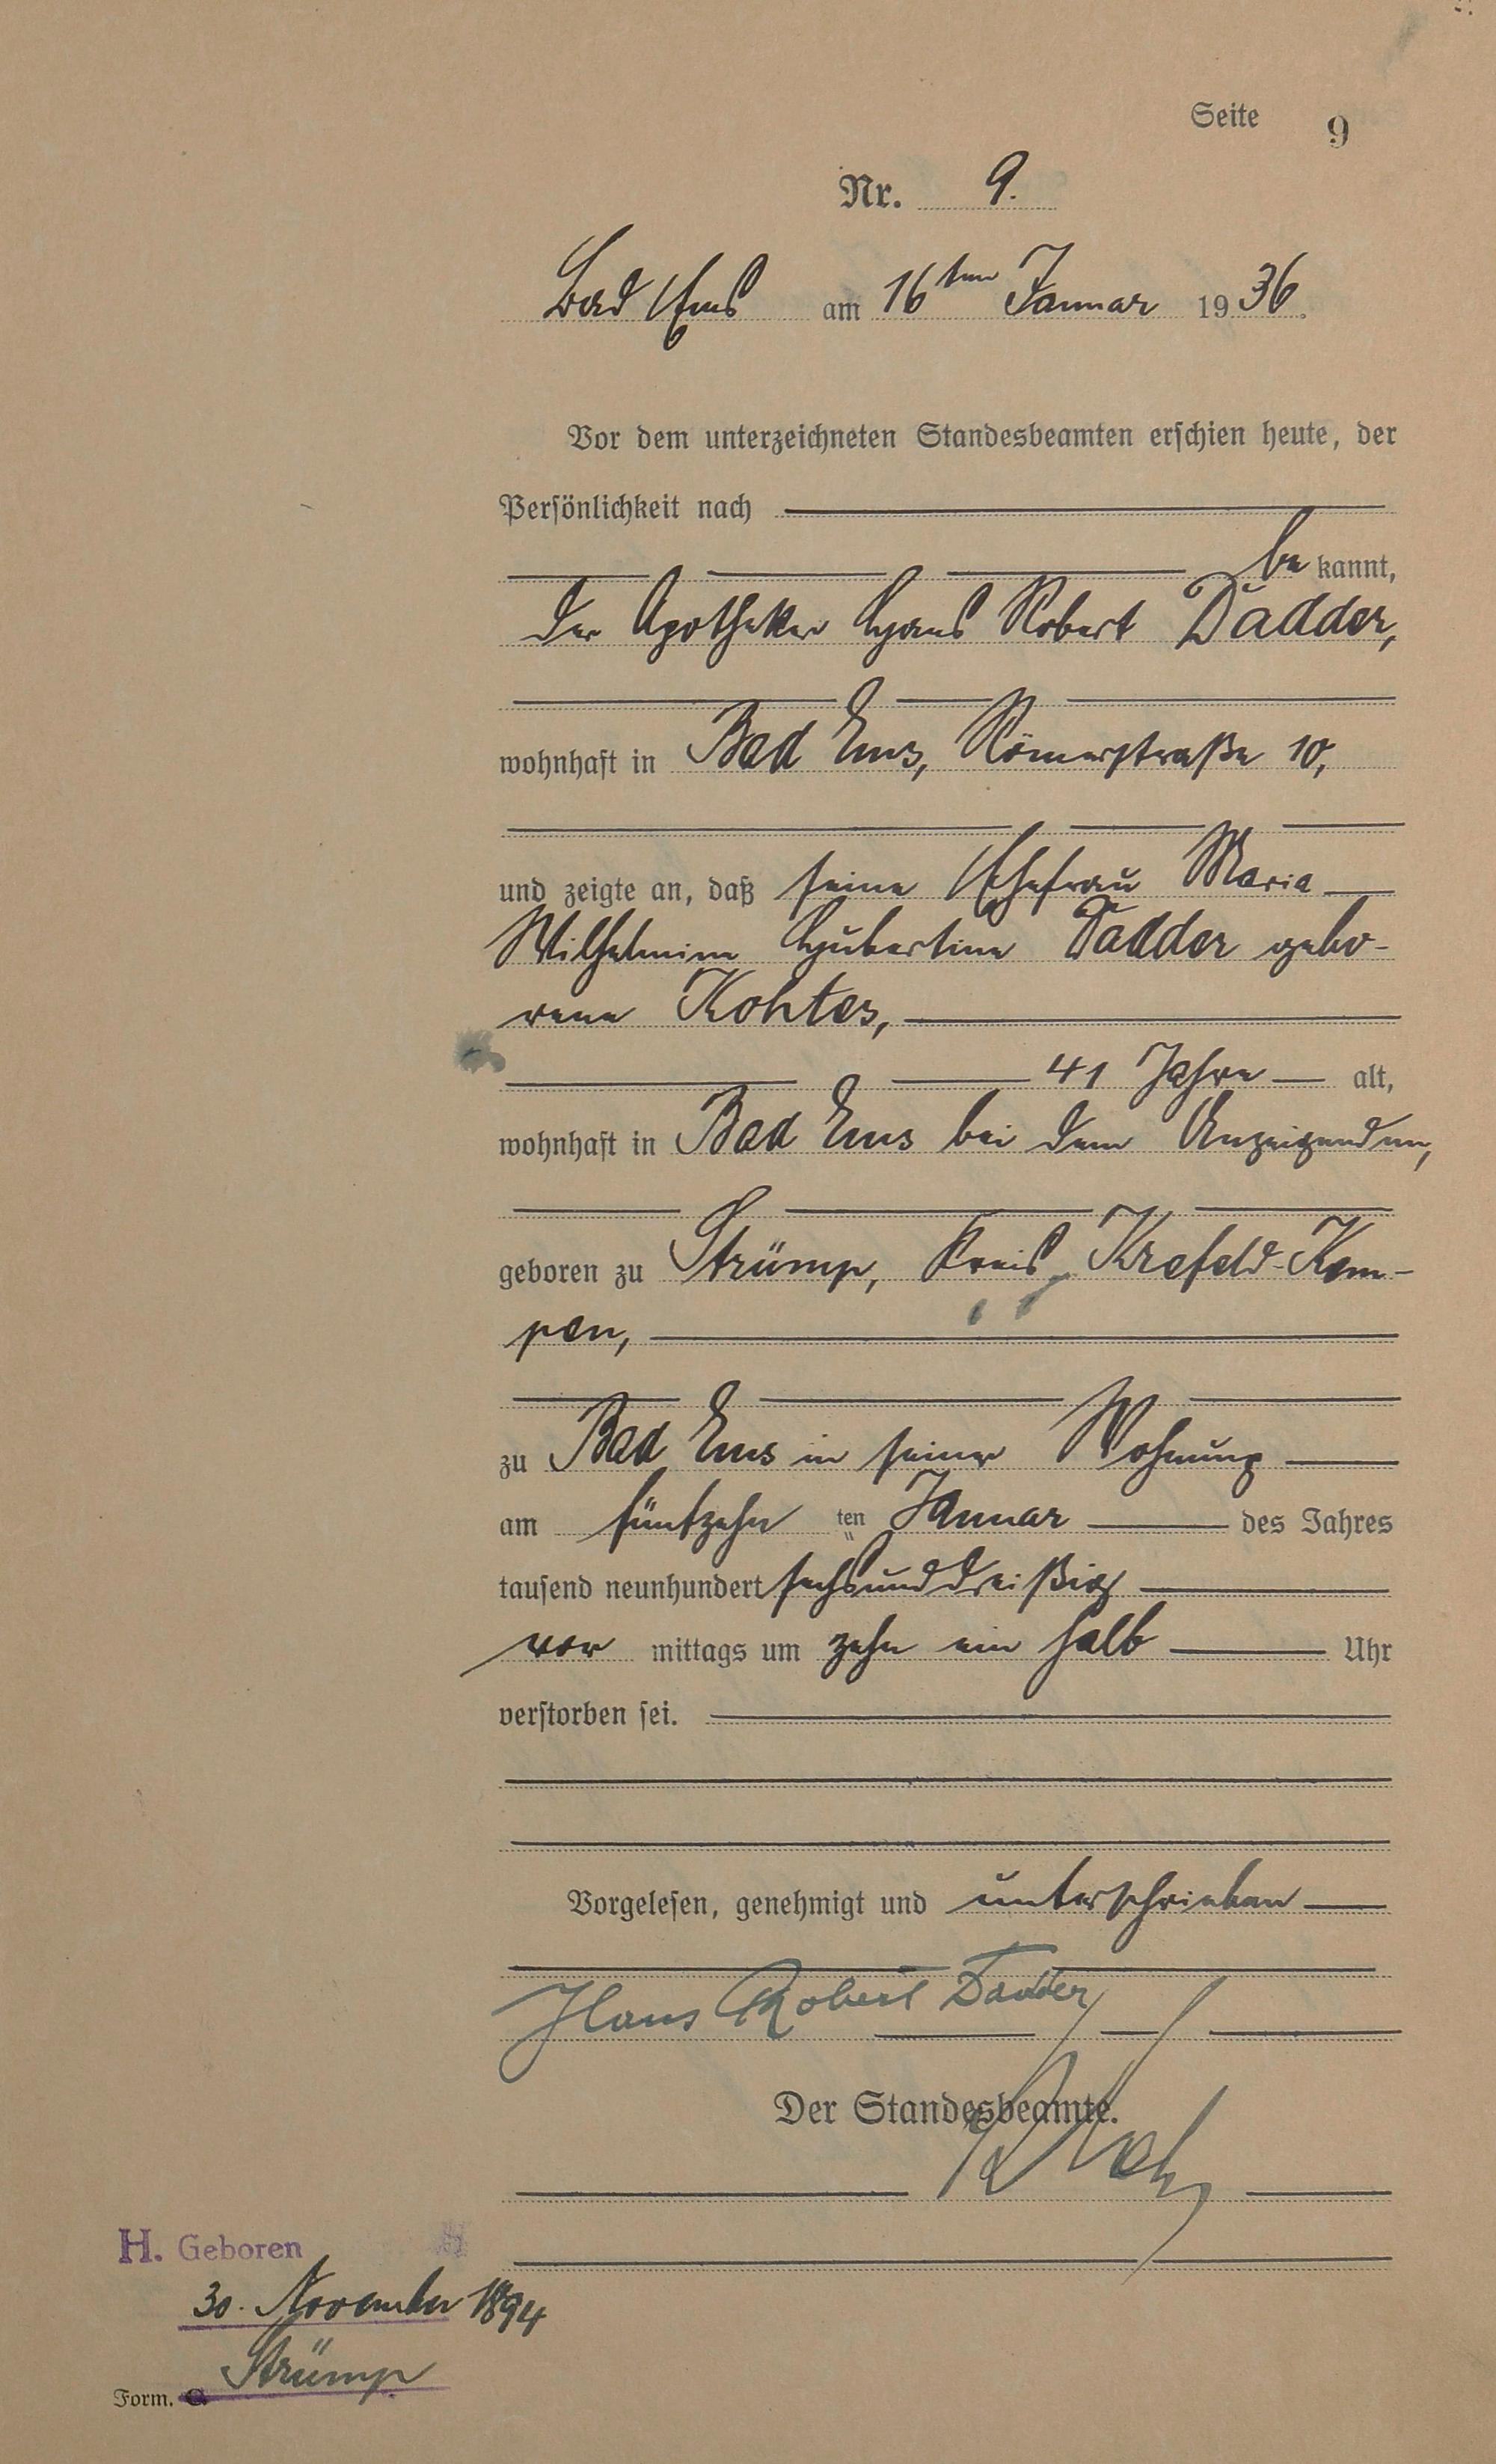 Seite 9
Nr. 9.
Bad Ems am 16ten Januar 1936.
Vor dem unterzeichneten Standesbeamten erschien heute, der
Persönlichkeit nach
be kannt,
der Apotheker Hans Robert Dadder,
wohnhaft in Bad Ems, Römerstraße 10,
und zeigte an, daß seine Ehefrau Maria
Wilhelmine Hubertine Dadder gebo-
rene Kohtes,
41 Jahre alt,
wohnhaft in Bad Ems bei dem Anzeigenden,
geboren zu Strümp, Kreis Krefeld-Kem-
pen,
zu Bad Ems in seiner Wohnung
am fünfzehn ten Januar des Jahres
tausend neunhundert sechsunddreißig
vor mittags um zehn ein halb Uhr
verstorben sei.
Vorgelesen, genehmigt und unterschrieben
Hans Robert Dadder
Der Standesbeamte.
H. Geboren
30. November 1894
Strümp
Form. C.